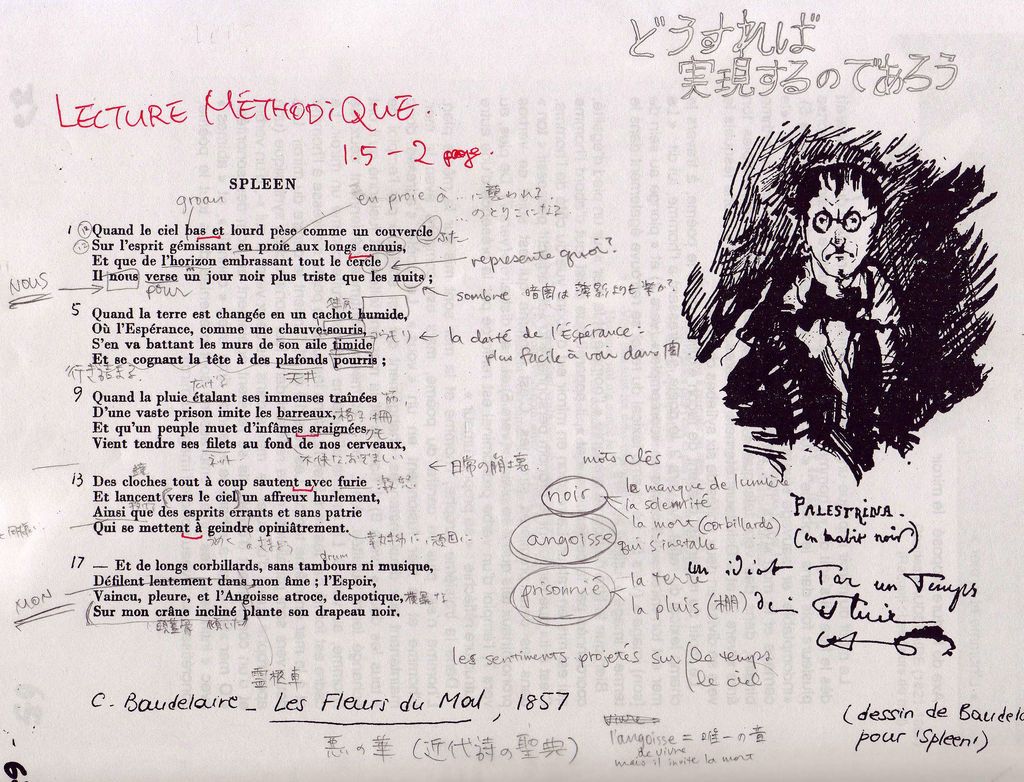 どうすれば
実現するのであろう
LECTURE MÉTHODIQUE.
1.5 – 2 page.
SPLEEN
groan
en proie à ...に襲われる
...のとりこになる
1 Quand le ciel bas et lourd pèse comme un couvercle ふた
Sur l'esprit gémissant en proie aux longs ennuis,
Et que de l'horizon embrassant tout le cercle
représente quoi?
Il nous verse un jour noir plus triste que les nuits ;
NOUS
pour
sombre 暗闇は
5 Quand la terre est changée en un cachot humide,
Où l'Espérance, comme une chauve-souris,
← la clarté de l'Espérance =
S'en va battant les murs de son aile timide
plus facile à voir dans 闇
Et se cognant la tête à des plafonds pourris ;
天井
9 Quand la pluie étalant ses immenses traînées
D'une vaste prison imite les barreaux, 格子 柵
Et qu'un peuple muet d'infâmes araignées クモ
Vient tendre ses filets au fond de nos cerveaux,
ネット
不快な おぞましい
← 日常の崩壊.
mots clés
13 Des cloches tout à coup sautent avec furie 激怒
Et lancent vers le ciel un affreux hurlement,
Ainsi que des esprits errants et sans patrie
Qui se mettent à geindre opiniâtrement.
noir
le manque de lumière
la solennité
la mort (corbillards)
angoisse
qui s'installe
drum
17 — Et de longs corbillards, sans tambours ni musique,
Défilent lentement dans mon âme ; l'Espoir,
Vaincu, pleure, et l'Angoisse atroce, despotique, 横暴な
Sur mon crâne incliné plante son drapeau noir.
MON
頭蓋骨 傾いた
霊柩車
prisonnié
la terre
la pluis (棚)
les sentiments projetés sur le temps
le ciel
PALESTRINA.
(en habit noir)
un idiot
Par un Temps
de
Pluie
C. Baudelaire – Les Fleurs du Mal, 1857
悪の華 (近代詩の聖典)
vivre
l'angoisse = 唯一の音
de vivre
mais il invite la mort
(dessin de Baudela
pour 'Spleen')